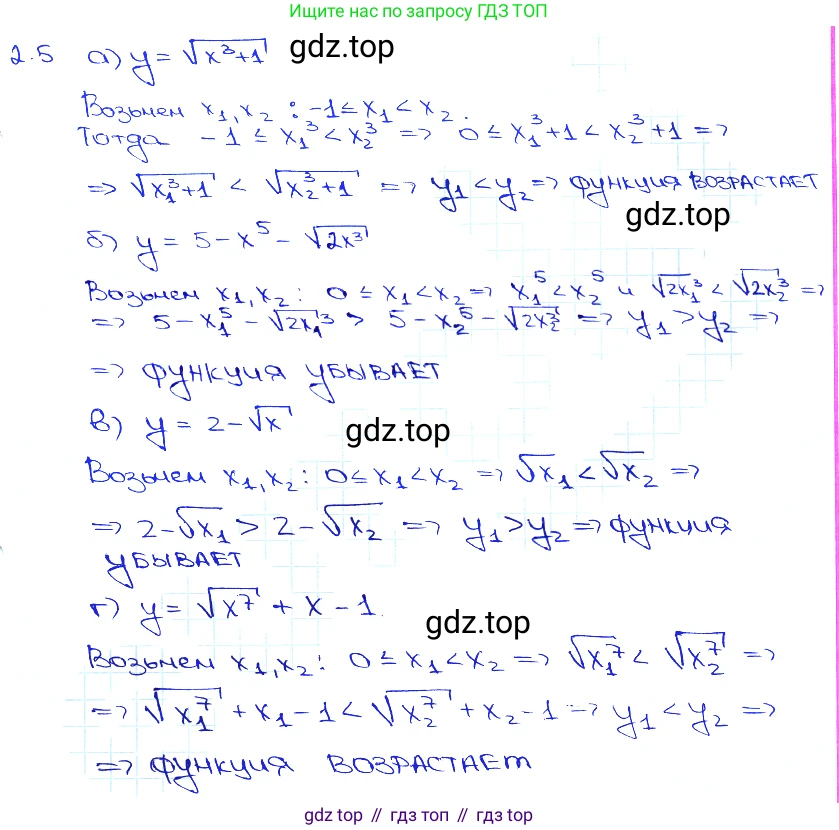 Ищите нас по запросу ГДЗ ТОП
2.5 а) y = √(x³+1) gdz.top
Возьмем x₁, x₂ : -1 ≤ x₁ < x₂.
Тогда -1 ≤ x₁³ < x₂³ => 0 ≤ x₁³+1 < x₂³+1 =>
=> √(x₁³+1) < √(x₂³+1) => y₁ < y₂ => функция ВОЗРАСТАЕТ
gdz.top
б) y = 5 - x⁵ - √(2x³)
Возьмем x₁, x₂ : 0 ≤ x₁ < x₂ => x₁⁵ < x₂⁵ и √(2x₁³) < √(2x₂³) =>
=> 5 - x₁⁵ - √(2x₁³) > 5 - x₂⁵ - √(2x₂³) => y₁ > y₂ =>
=> функция УБЫВАЕТ
в) y = 2 - √x gdz.top
Возьмем x₁, x₂ : 0 ≤ x₁ < x₂ => √x₁ < √x₂ =>
=> 2 - √x₁ > 2 - √x₂ => y₁ > y₂ => функция
УБЫВАЕТ
г) y = √(x⁷) + x - 1.
gdz.top
Возьмем x₁, x₂ : 0 ≤ x₁ < x₂ => √(x₁⁷) < √(x₂⁷) =>
=> √(x₁⁷) + x₁ - 1 < √(x₂⁷) + x₂ - 1 => y₁ < y₂ =>
=> функция ВОЗРАСТАЕТ
gdz top // гдз топ // gdz top